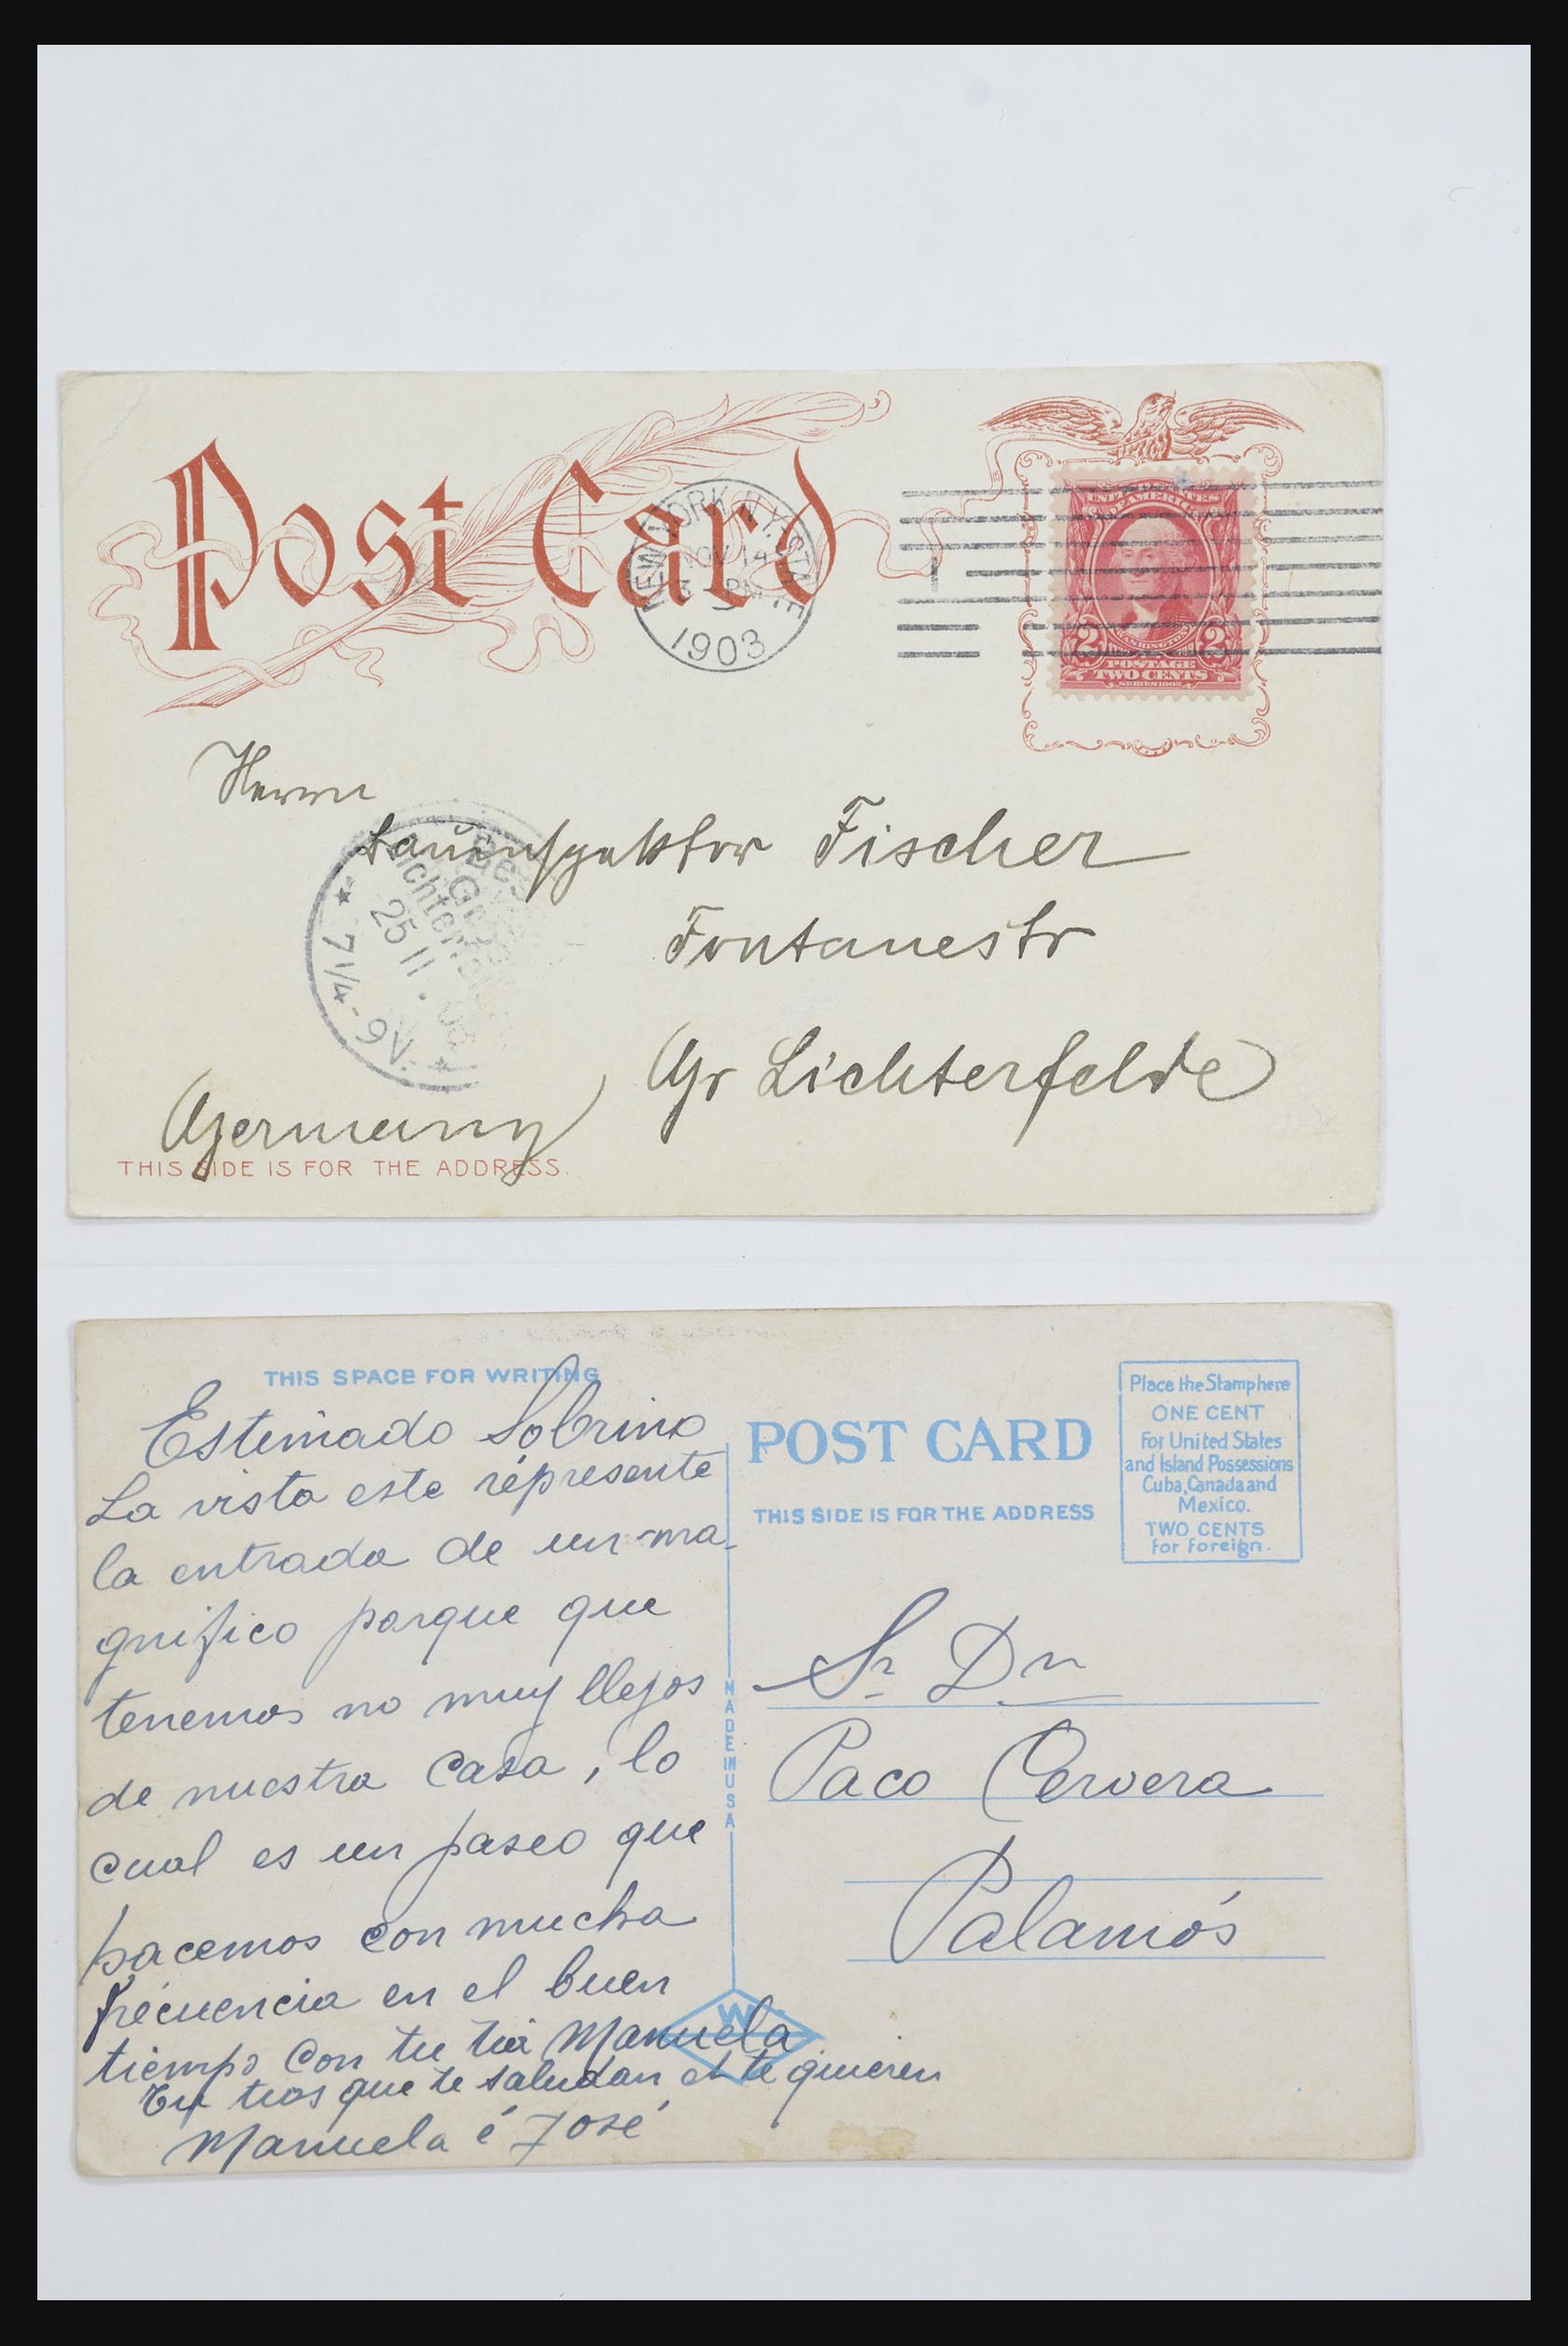 Post Card
NEW YORK, N.Y. STA. E
NOV 14
3 - PM
1903
UNITED STATES
OF AMERICA
WASHINGTON
2 2
POSTAGE
TWO CENTS
SERIES 1902
Herrn
Bauinspektor Fischer
Fontanestr
Gr Lichterfelde
Germany
25 11. 03
* 7 1/4 - 9 V. *
THIS SIDE IS FOR THE ADDRESS.
THIS SPACE FOR WRITING
Estemado Sobrino
La vista este répresente
la entrada de un ma-
gnifico parque que
tenemos no muy llejos
de nuestra casa, lo
cual es un paseo que
hacemos con mucha
frécuencia en el buen
tiempo con tu tia Manuela
Tu tios que te saludan et te quieren
Manuela é José
POST CARD
THIS SIDE IS FOR THE ADDRESS
Place the Stamp here
ONE CENT
For United States
and Island Possessions
Cuba, Canada and
Mexico.
TWO CENTS
for Foreign.
MADE IN USA
W
Sr Dn
Paco Cervera
Palamós